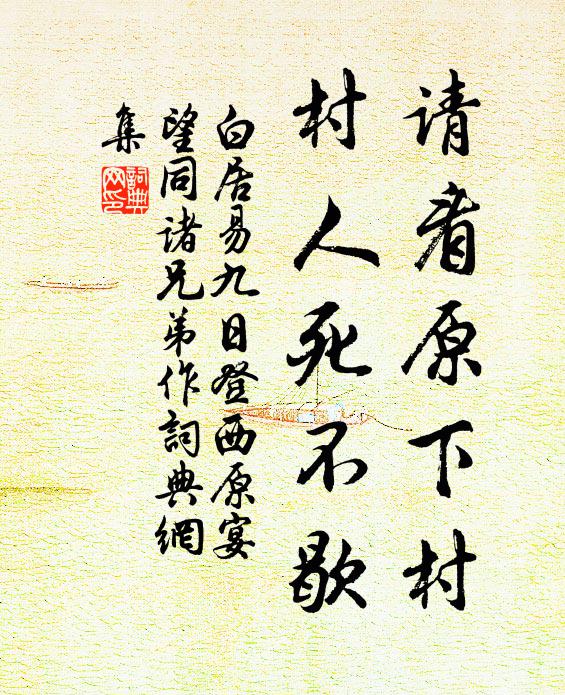 请看原下村
村人死不歇
白居易九日登西原宴
望同诸兄弟作詞典網
集
詞典
网印